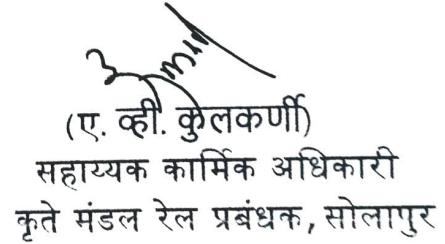 (ए. व्ही. कुलकर्णी)
सहाय्यक कार्मिक अधिकारी
कृते मंडल रेल प्रबंधक, सोलापुर